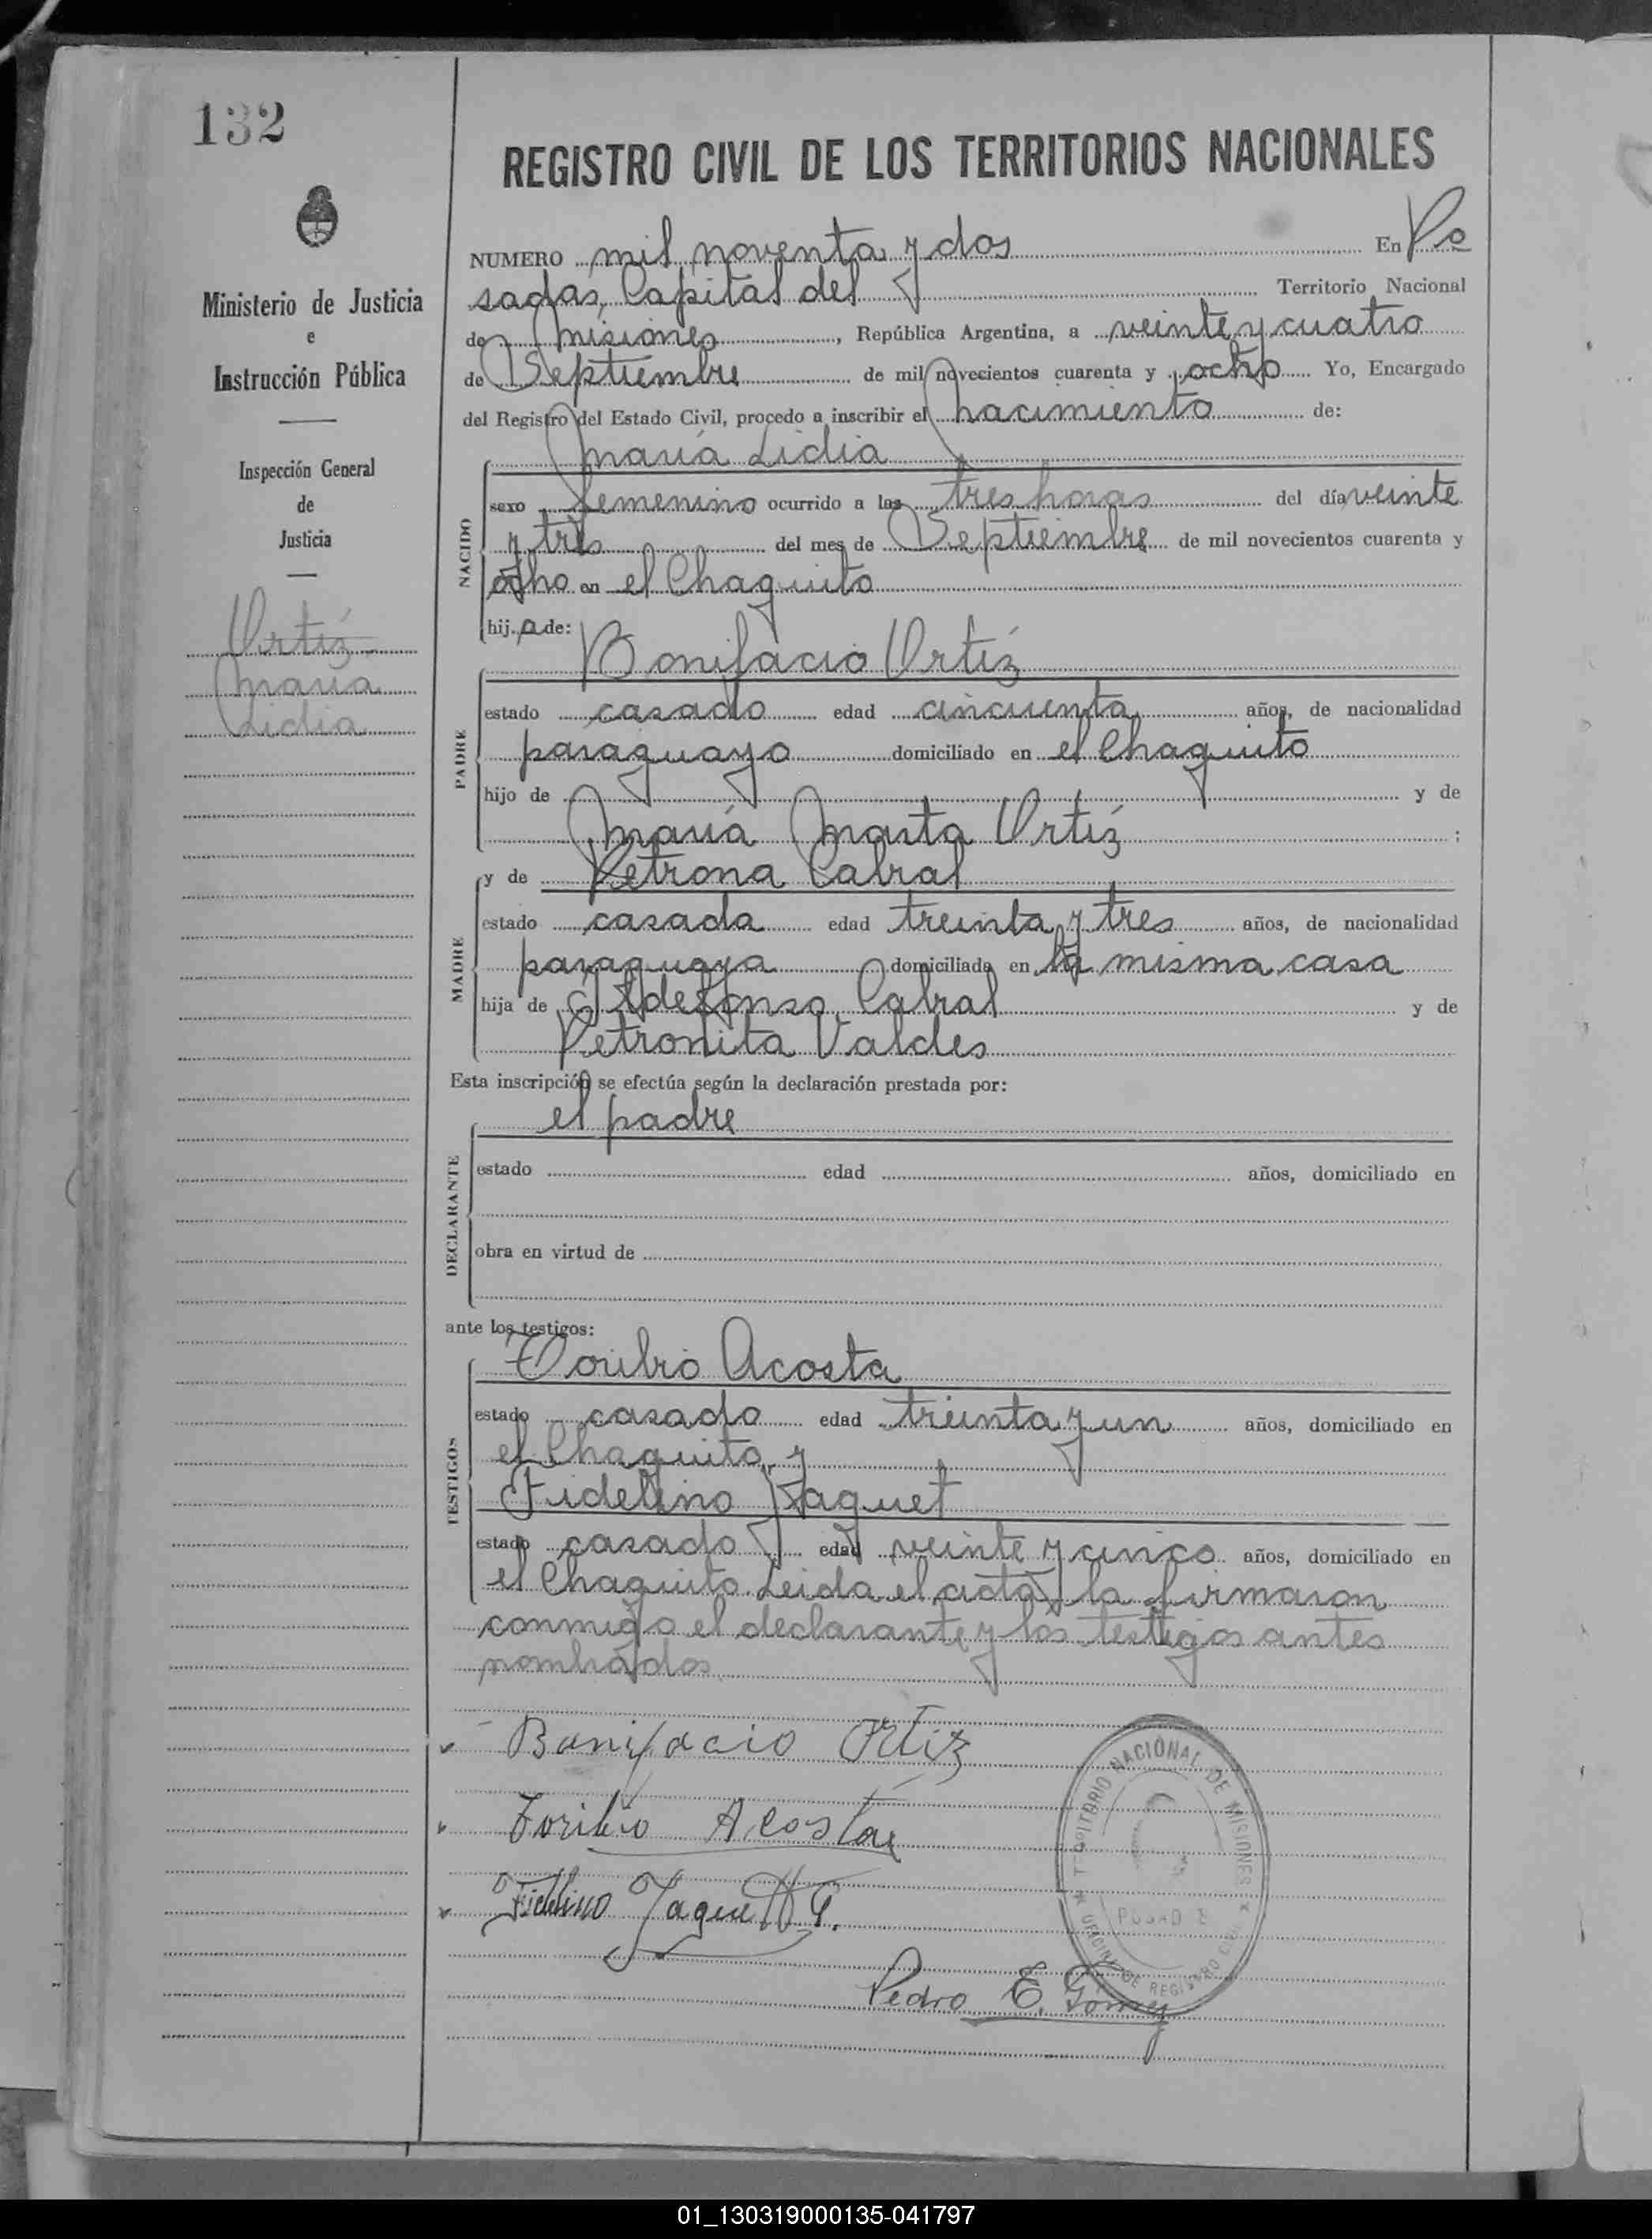 132
REGISTRO CIVIL DE LOS TERRITORIOS NACIONALES
Ministerio de Justicia
e
Instrucción Pública
Inspección General
de
Justicia
Ortíz
María
Lidia
NUMERO mil noventa y dos En Po
sadas, Capital del Territorio Nacional
de Misiones, República Argentina, a veinte y cuatro
de Septiembre de mil novecientos cuarenta y ocho Yo, Encargado
del Registro del Estado Civil, procedo a inscribir el nacimiento de:
NACIDO
María Lidia
sexo femenino ocurrido a las tres horas del día veinte
y tres del mes de Septiembre de mil novecientos cuarenta y
ocho en el Chaquito
hija de:
PADRE
Bonifacio Ortíz
estado casado edad cincuenta años, de nacionalidad
paraguayo domiciliado en el Chaquito
hijo de y de
María Marta Ortíz ;
MADRE
y de Petrona Cabral
estado casada edad treinta y tres años, de nacionalidad
paraguaya domiciliada en la misma casa
hija de Ildefonso Cabral y de
Petronita Valdes
Esta inscripción se efectúa según la declaración prestada por:
DECLARANTE
el padre
estado edad años, domiciliado en
obra en virtud de
ante los testigos:
TESTIGOS
Toribio Acosta
estado casado edad treinta y un años, domiciliado en
el Chaquito, y
Fidelino Jaquet
estado casado edad veinte y cinco años, domiciliado en
el Chaquito. Leida el acta, la firmaron
conmigo el declarante y los testigos antes
nombrados
Bonifacio Ortiz
Toribio Acosta
Fidelino Jaquet
Pedro E. Gomez
TERRITORIO NACIONAL DE MISIONES
POSADAS
OFICINA DE REGISTRO CIVIL
01_130319000135-041797